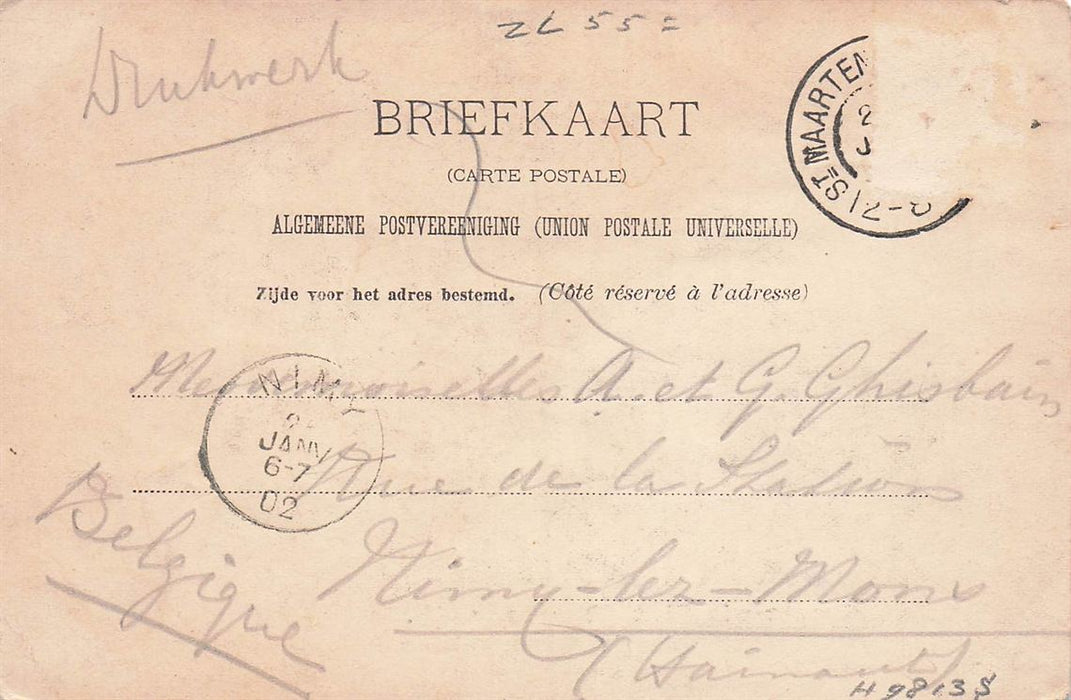 ZL 55=
Drukwerk
BRIEFKAART
(CARTE POSTALE)
ALGEMEENE POSTVEREENIGING (UNION POSTALE UNIVERSELLE)
Zijde voor het adres bestemd. (Côté réservé à l'adresse)
ST MAARTEN
12-8
NIMY
JANV
6-7
02
Mesdemoiselles A. et G. Ghisbain
Rue de la Station
Nimy-lez-Mons
(Hainaut)
Belgique
H 9813 $